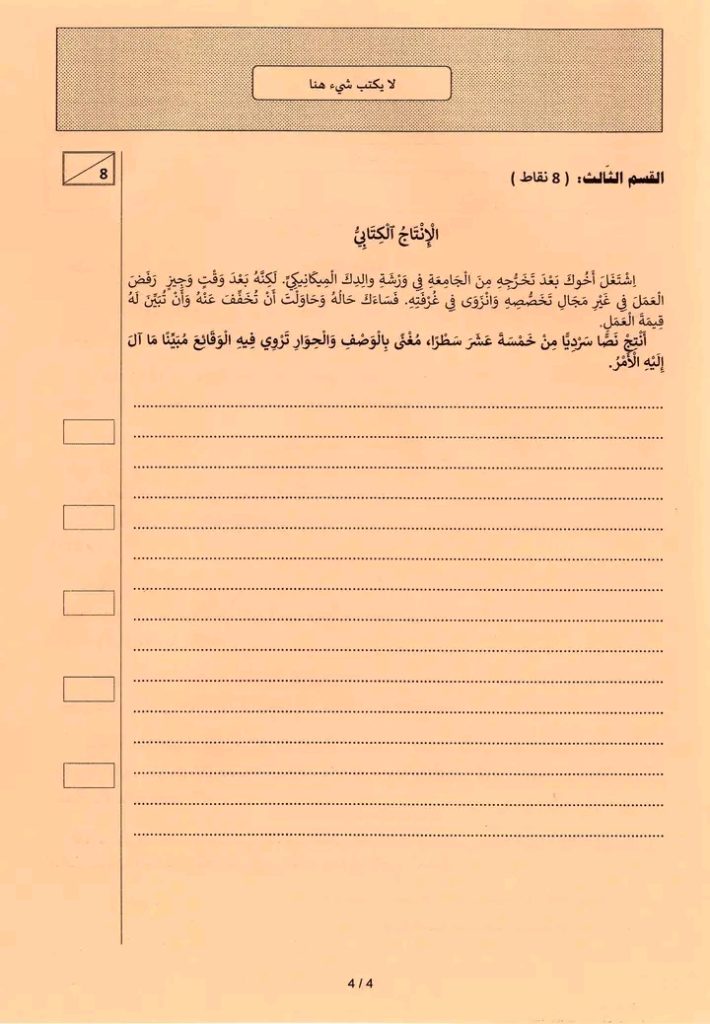 لا يكتب شيء هنا
القسم الثّالث: ( 8 نقاط )
8
الْإِنْتَاجُ ٱلْكِتَابِيُّ
اِشْتَغَلَ أَخُوكَ بَعْدَ تَخَرُّجِهِ مِنَ الْجَامِعَةِ فِي وَرْشَةِ والِدِكَ الْمِيكَانِيكِيِّ. لَكِنَّهُ بَعْدَ وَقْتٍ وَجِيزٍ رَفَضَ
الْعَمَلَ فِي غَيْرِ مَجَالِ تَخَصُّصِهِ وَانْزَوَى فِي غُرْفَتِهِ. فَسَاءَكَ حَالُهُ وَحَاوَلْتَ أَنْ تُخَفِّفَ عَنْهُ وَأَنْ تُبَيِّنَ لَهُ
قِيمَةَ الْعَمَلِ.
أَنْتِجْ نَصًّا سَرْدِيًّا مِنْ خَمْسَةَ عَشَرَ سَطْرًا، مُغْنًى بِالْوَصْفِ وَالْحِوَارِ تَرْوِي فِيهِ الْوَقَائِعَ مُبَيِّنًا مَا آلَ
إِلَيْهِ الْأَمْرُ.
4 / 4